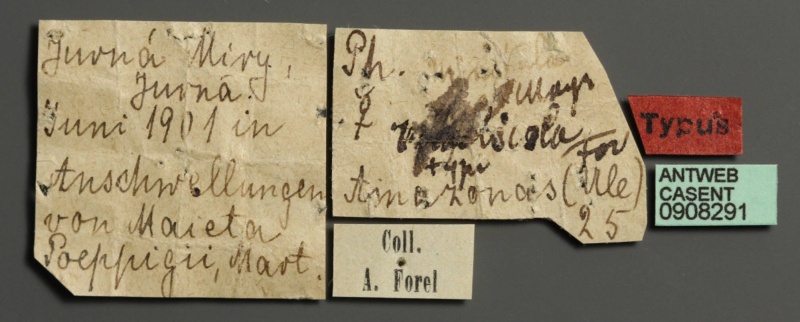 Juruá Miry,
Juruá.
Juni 1901 in
Anschwellungen
von Maieta
Poeppigii, Mart.
Ph.
Mayr
☿
For
type
Amazonas (Ule)
25
Coll.
A. Forel
Typus
ANTWEB
CASENT
0908291